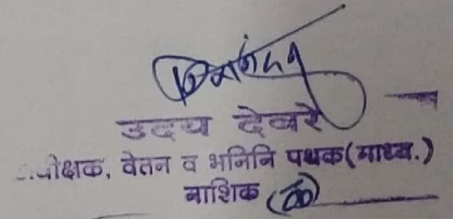 उदय देवरे
अधीक्षक, वेतन व भनिनि पथक(माध्य.)
नाशिक